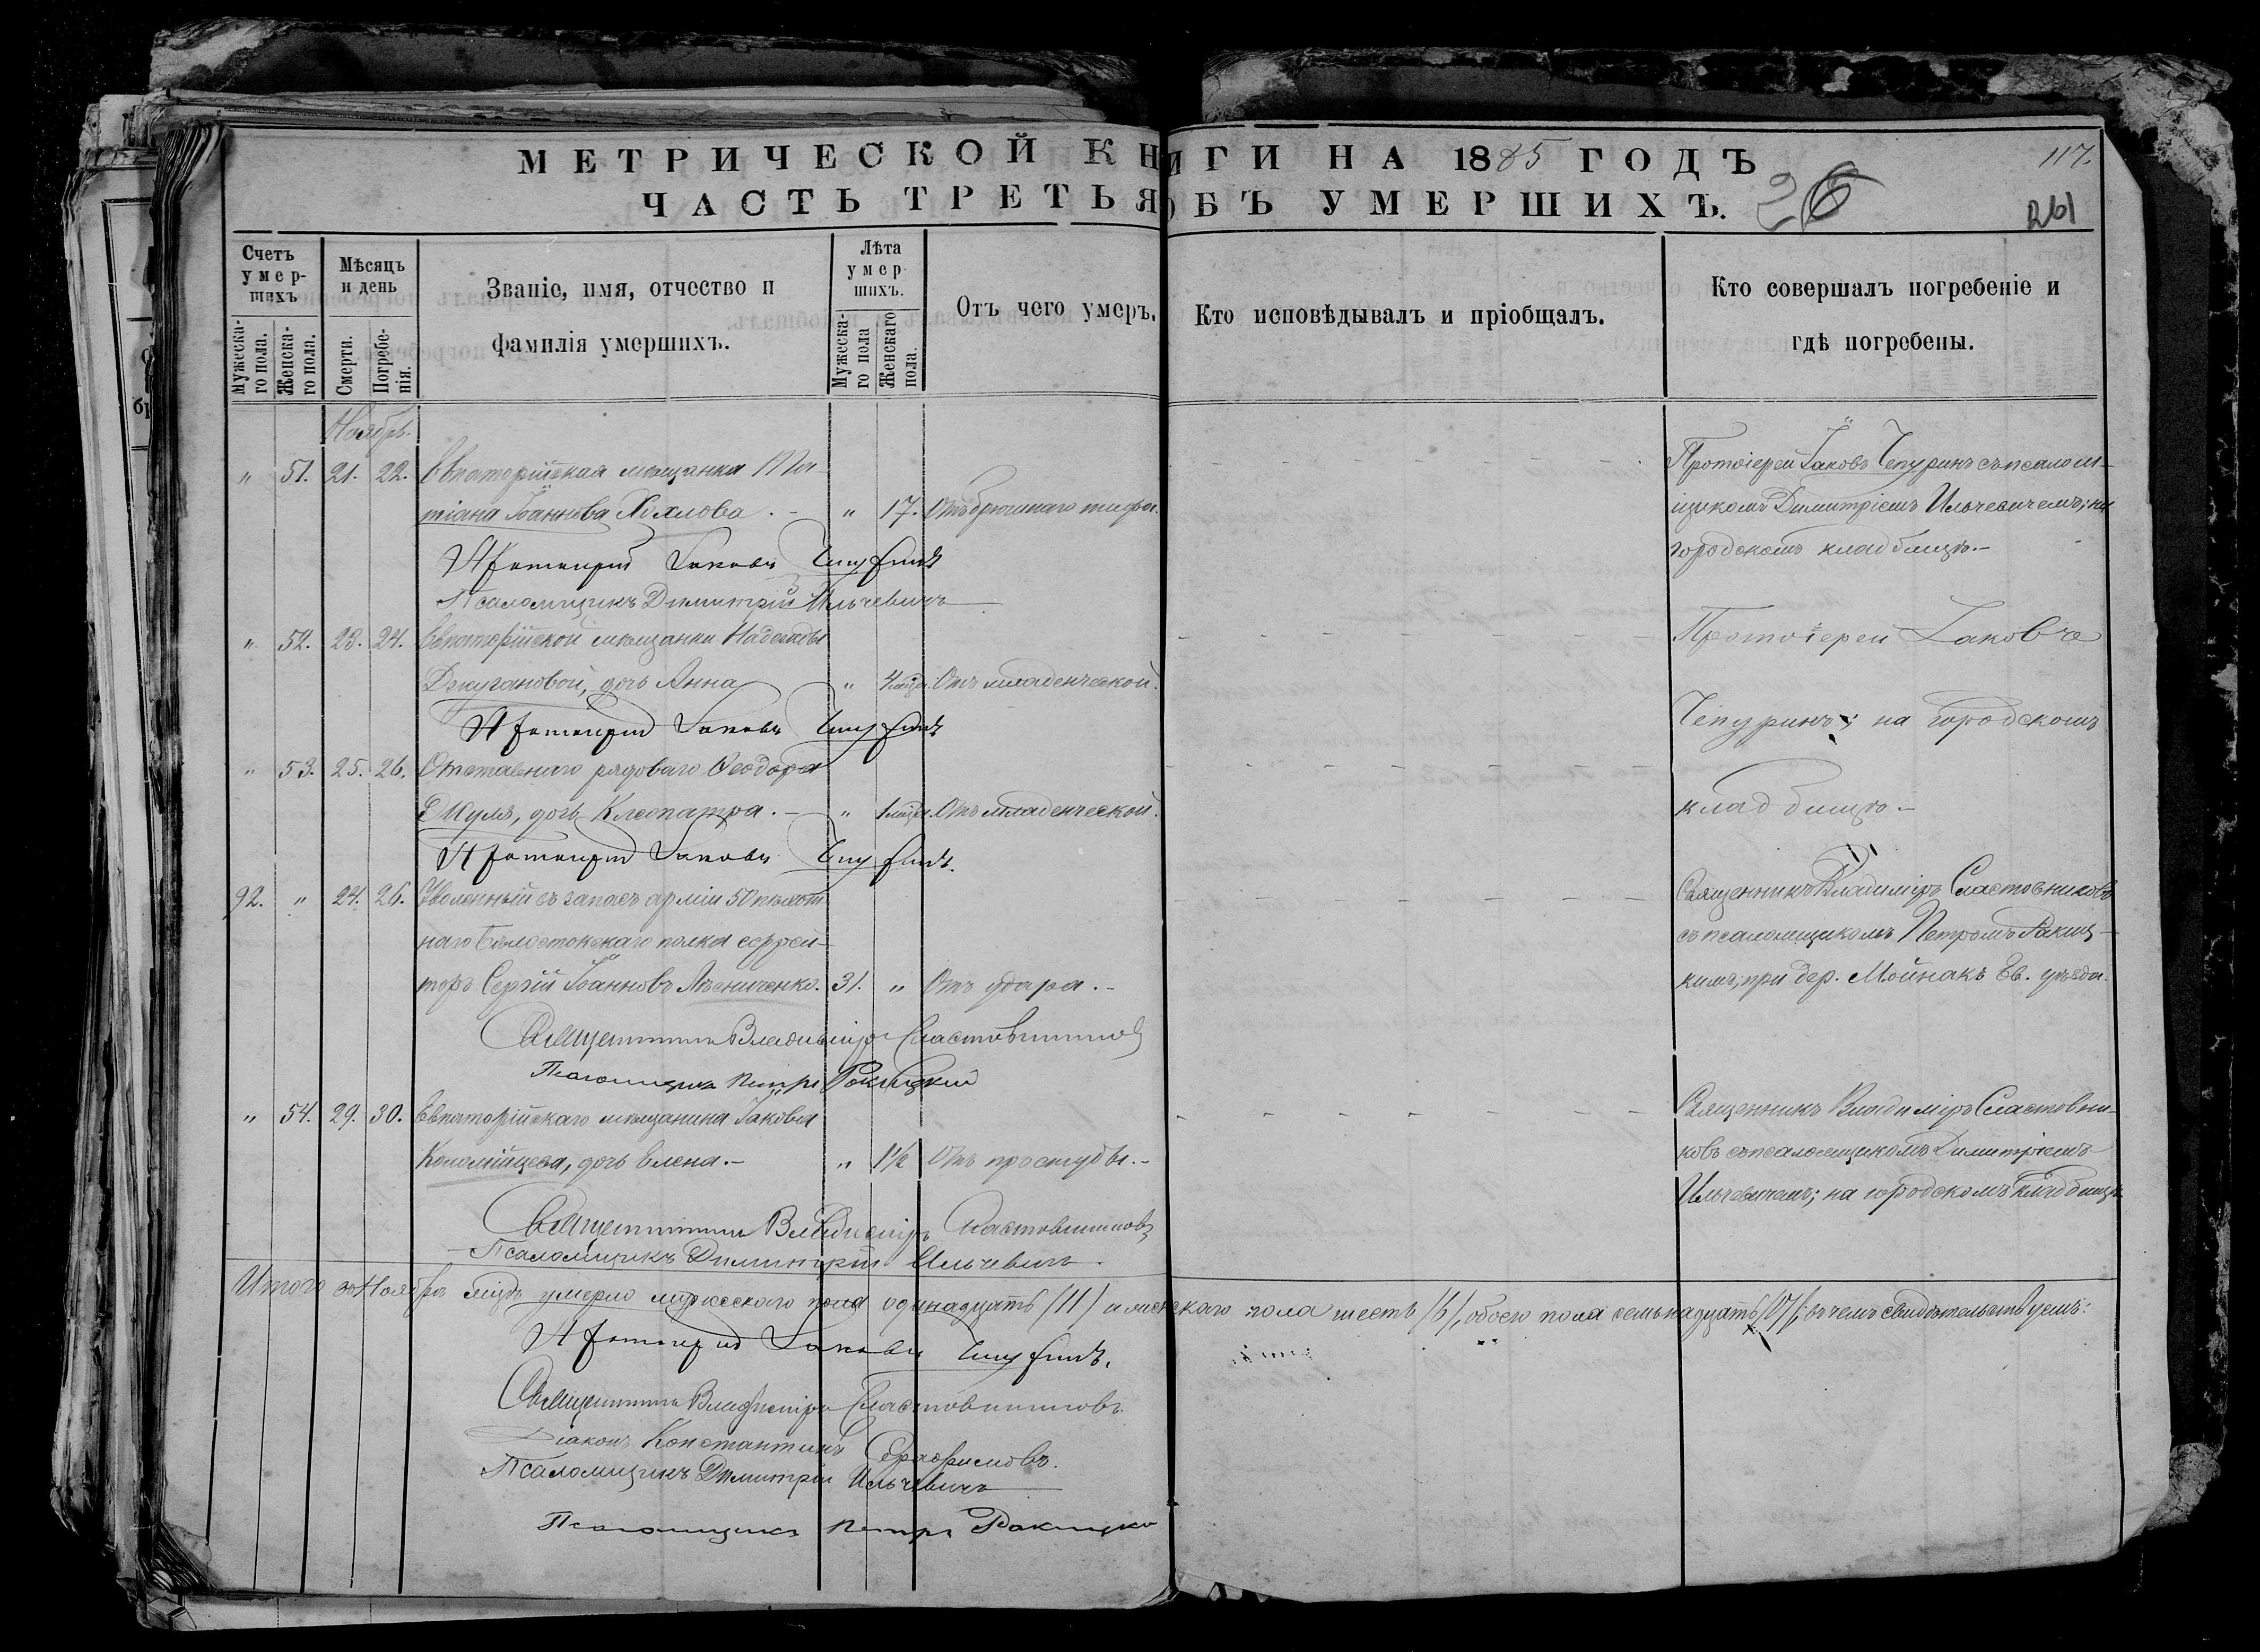 МЕТРИЧЕСКОЙ КНИГИ НА 1885 ГОДЪ
117.
ЧАСТЬ ТРЕТЬЯ ОБЪ УМЕРШИХЪ.
26
261
Счетъ умер-шихъ
Мужеска-го пола.
Женска-го пола.
Мѣсяцъ и день
Смерти.
Погребе-нія.
Званіе, имя, отчество и
фамилія умершихъ.
Лѣта умер-шихъ.
Мужеска-го пола
Женскаго пола.
Отъ чего умеръ.
Кто исповѣдывалъ и пріобщалъ.
Кто совершалъ погребеніе и
гдѣ погребены.
Ноябрь.
" 51. 21. 22. Евпаторійская мѣщанка Та-
тіана Іоаннова Хохлова. - " 17. Отъ брюшнаго тифа.
Протоіерей Іаковъ Чепуринъ съ псалом-
щикомъ Димитріемъ Ильчевичемъ; на
городскомъ кладбищѣ.-
Протоіерей Іаковъ Чепуринъ
Псаломщикъ Димитрій Ильчевичъ
" 52. 23. 24. Евпаторійской мѣщанки Надежды
Джугановой, дочь Анна " 4 мѣця. Отъ младенческой.
Протоіерей Іаковъ Чепуринъ
Протоіерей Іаковъ
Чепуринъ; на городскомъ
кладбищѣ.-
" 53. 25. 26. Отставнаго рядоваго Ѳеодора
Шуля, дочь Клеопатра. - " 1 мѣця. Отъ младенческой.
Протоіерей Іаковъ Чепуринъ.
92. " 24. 26. Уволенный въ запасъ арміи 50 пѣхот
наго Бѣлостокскаго полка ефрей-
торъ Сергій Іоанновъ Лѣсниченко. 31. " Отъ удара.-
Священникъ Владиміръ Сластовниковъ
съ псаломщикомъ Петромъ Ракиц-
кимъ; при дер. Мойнакъ Ев. уѣзда.
Священникъ Владиміръ Сластовниковъ
Псаломщикъ Петръ Ракицкій
" 54. 29. 30. Евпаторійскаго мѣщанина Іакова
Коломійцева, дочь Елена.- " 1½ Отъ простуды.-
Священникъ Владиміръ Сластовни-
ковъ съ псаломщикомъ Димитріемъ
Ильчевичемъ; на городскомъ кладбищѣ
Священникъ Владиміръ Сластовниковъ
Псаломщикъ Димитрій Ильчевичъ.
Итого въ Ноябрѣ мѣцѣ умерло мужескаго пола одинадцать (11) и женскаго пола шесть (6), обоего пола семьнадцать (17); въ чемъ свидѣтельствуемъ:
Протоіерей Іаковъ Чепуринъ.
Священникъ Владиміръ Сластовниковъ.
Діаконъ Константинъ
Псаломщикъ Димитрій Ильчевичъ
Псаломщикъ Петръ Ракицкій